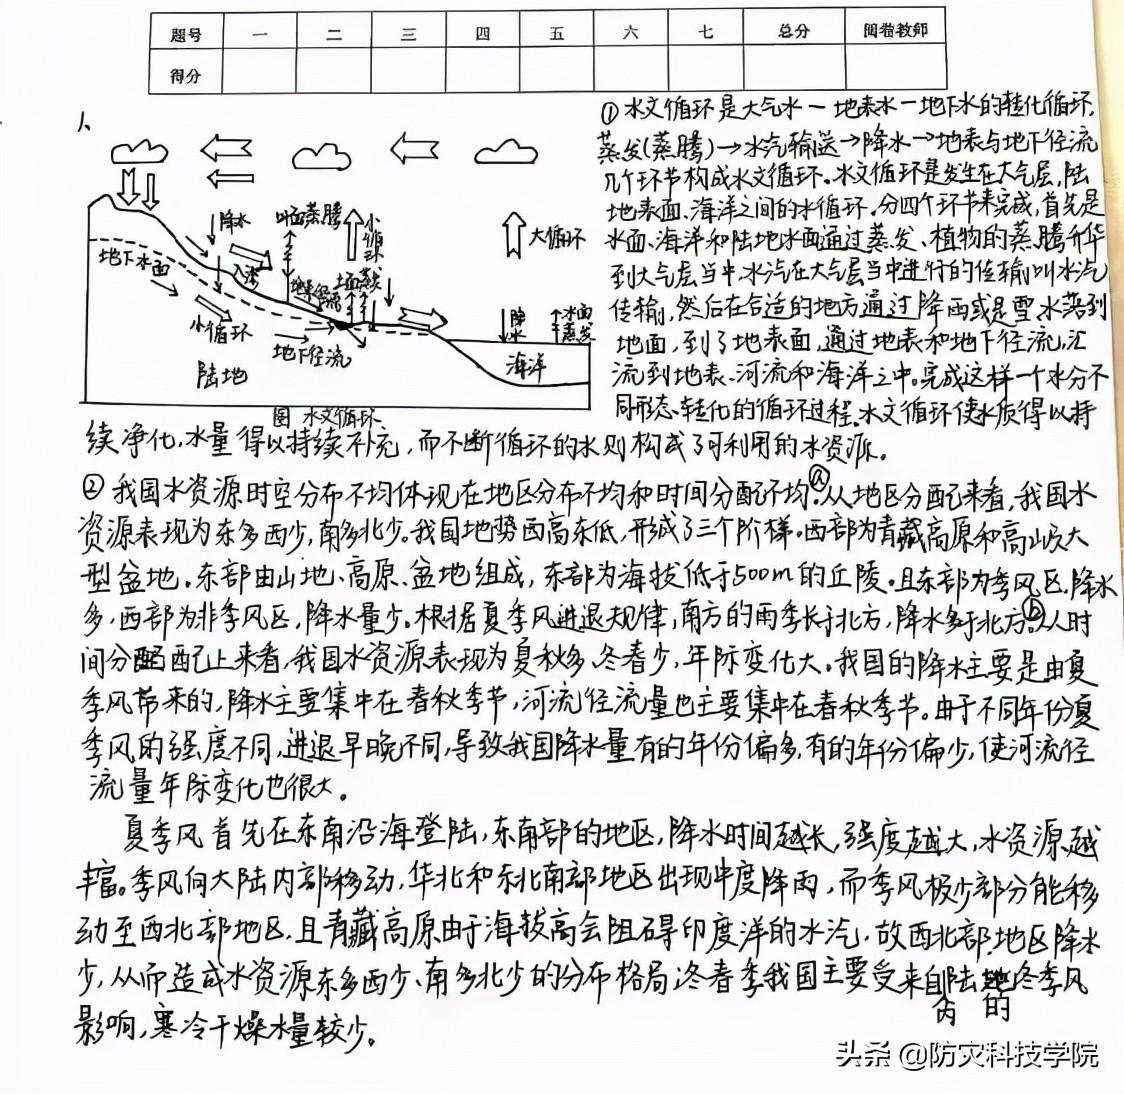 题号 一 二 三 四 五 六 七 总分 阅卷教师
得分
1、
降水
叶面蒸腾
小循环
大循环
地下水面
入渗
地表径流
土面蒸发
小循环
地下径流
降水
水面蒸发
陆地
海洋
图 水文循环
①水文循环是大气水一地表水一地下水的转化循环,
蒸发(蒸腾)→水汽输送→降水→地表与地下径流
几个环节构成水文循环.水文循环是发生在大气层,陆
地表面、海洋之间的水循环.分四个环节来完成,首先是
水面、海洋和陆地水面通过蒸发、植物的蒸腾升华
到大气层当中,水汽在大气层当中进行的传输叫水汽
传输,然后在合适的地方通过降雨或是雪水落到
地面,到了地表面,通过地表和地下径流,汇
流到地表、河流和海洋之中.完成这样一个水分不
同形态、转化的循环过程.水文循环使水质得以持
续净化,水量得以持续补充,而不断循环的水则构成了可利用的水资源。
②我国水资源时空分布不均体现在地区分布不均和时间分配不均.ⓐ从地区分配来看,我国水
资源表现为东多西少,南多北少。我国地势西高东低,形成了三个阶梯。西部为青藏高原和高山及大
型盆地。东部由山地、高原、盆地组成,东部为海拔低于500m的丘陵。且东部为季风区,降水
多,西部为非季风区,降水量少。根据夏季风进退规律,南方的雨季长于北方,降水多于北方。ⓑ从时
间分配上来看,我国水资源表现为夏秋多、冬春少,年际变化大。我国的降水主要是由夏
季风带来的,降水主要集中在春秋季节,河流径流量也主要集中在春秋季节。由于不同年份夏
季风的强度不同,进退早晚不同,导致我国降水量有的年份偏多,有的年份偏少,使河流径
流量年际变化也很大。
夏季风首先在东南沿海登陆,东南部的地区,降水时间越长,强度越大,水资源越
丰富。季风向大陆内部移动,华北和东北南部地区出现中度降雨,而季风极少部分能移
动至西北部地区,且青藏高原由于海拔高会阻碍印度洋的水汽,故西北部地区降水
少,从而造成水资源东多西少、南多北少的分布格局,冬春季我国主要受来自内陆的冬季风
影响,寒冷干燥水量较少。
头条 @防灾科技学院